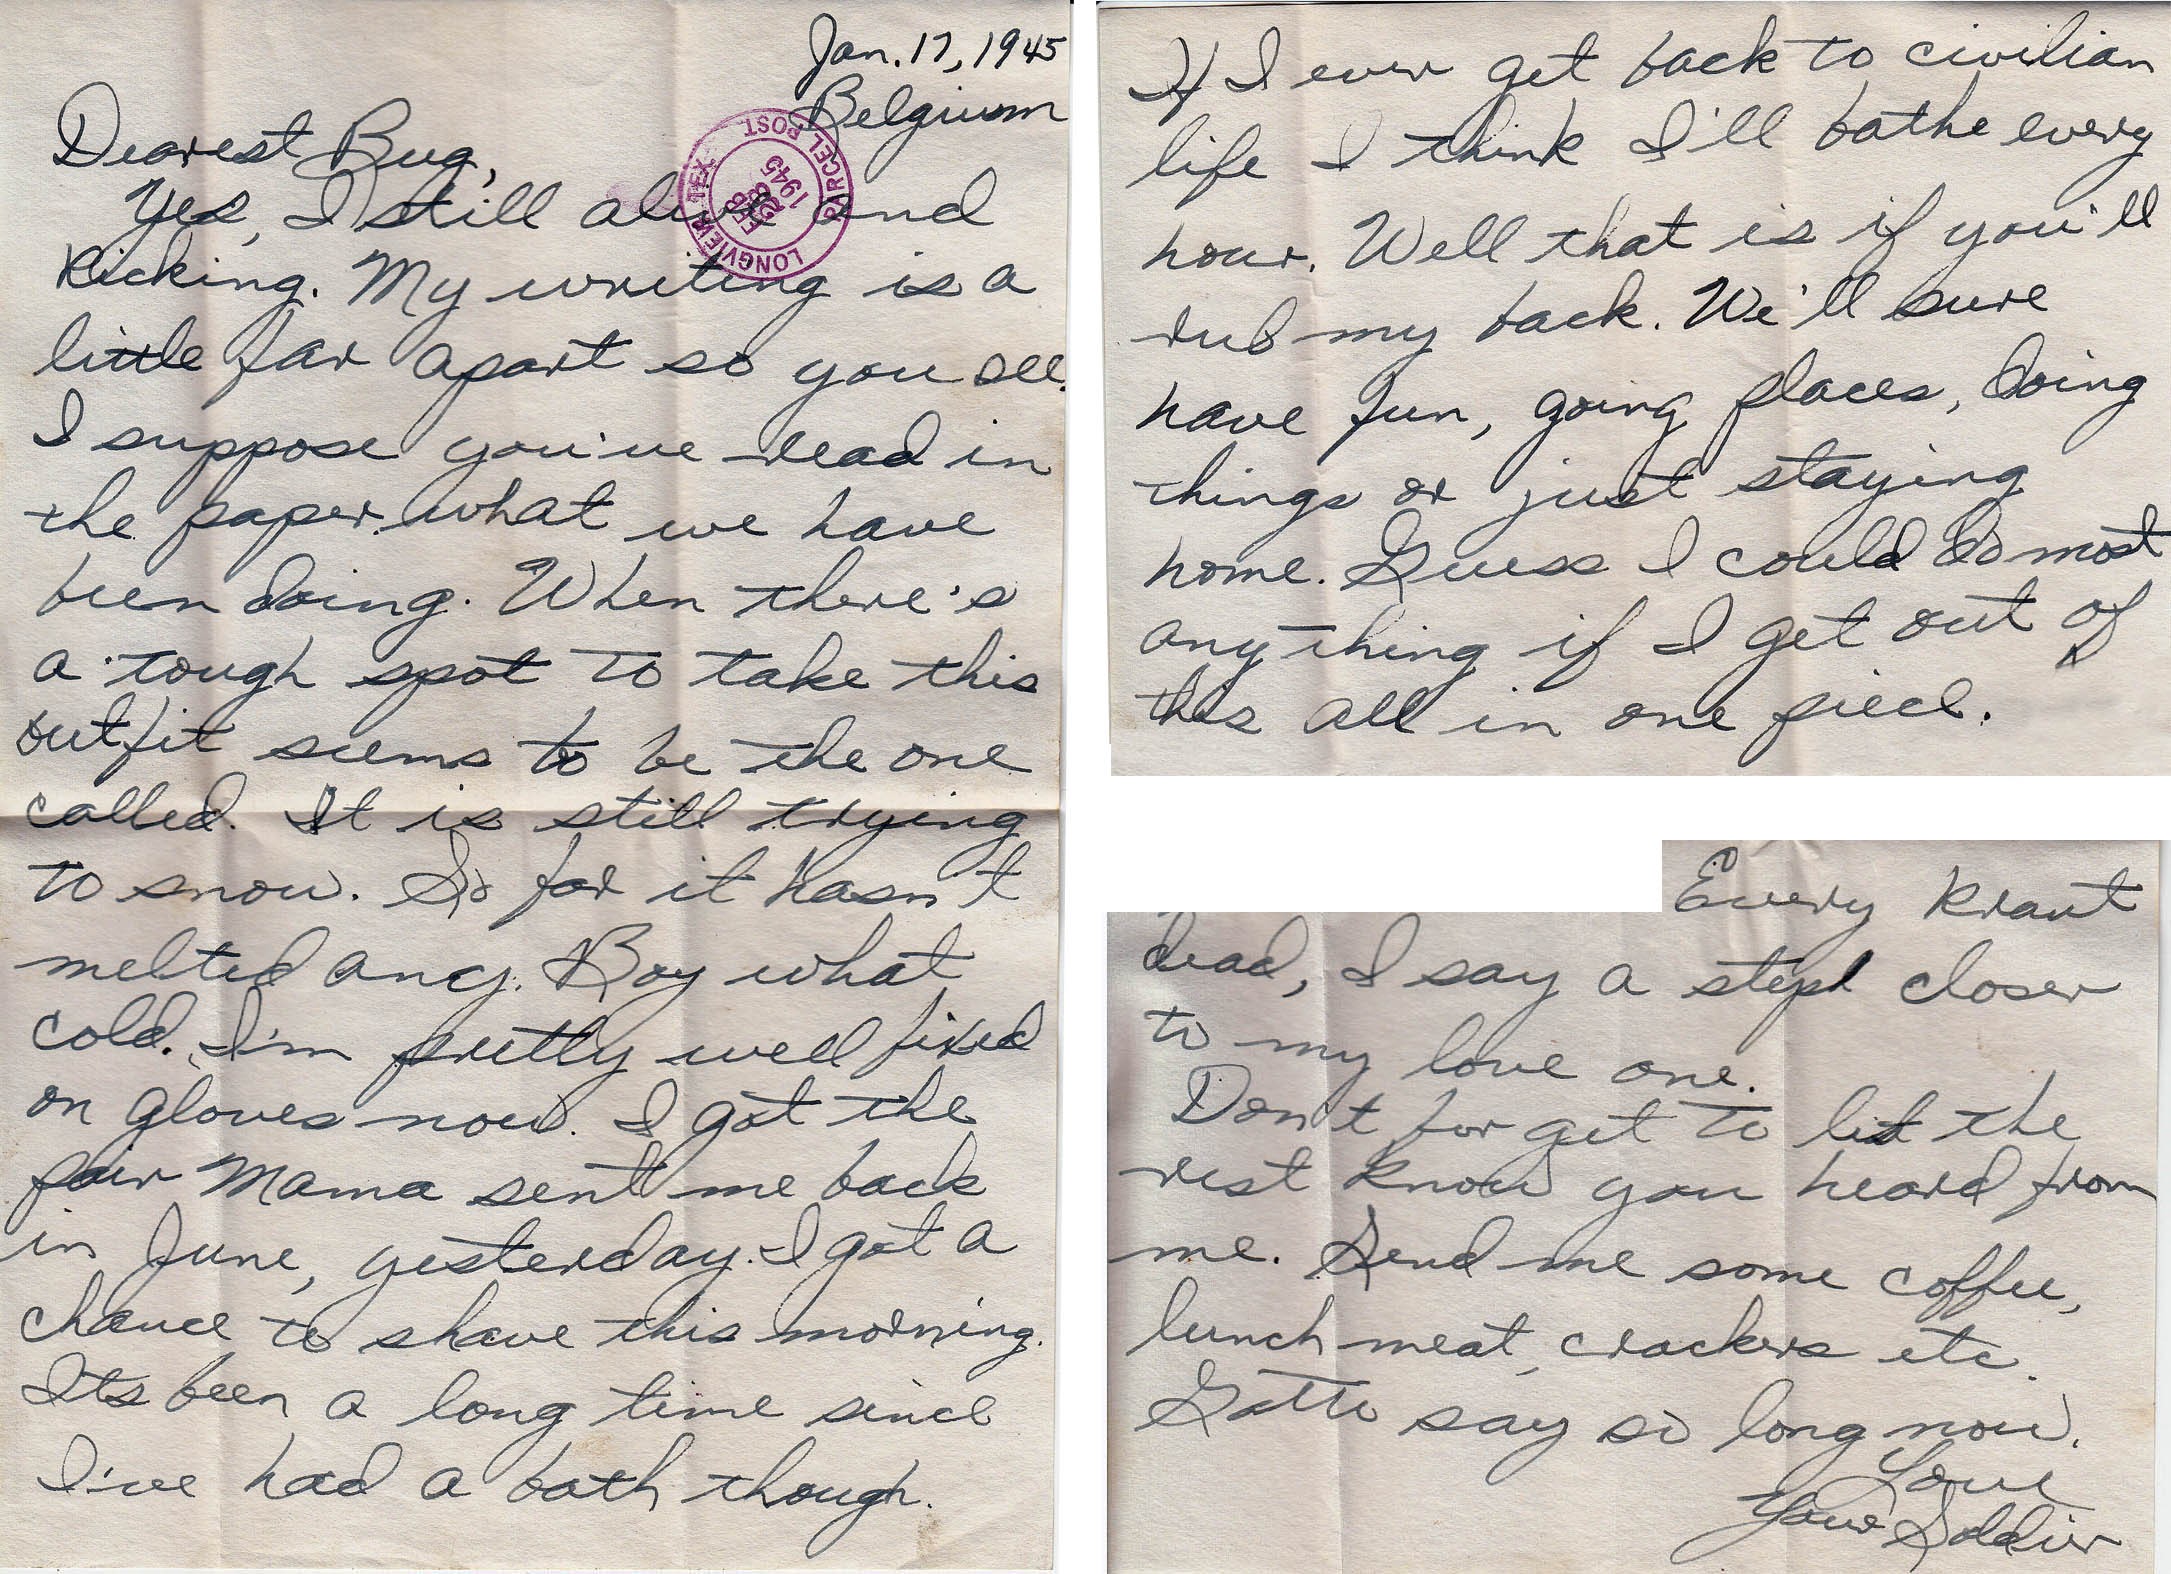 Jan. 17, 1945
Belgium
Dearest Bug,
Yes, I still alive and
kicking. My writing is a
little far apart so you see.
I suppose you've read in
the paper what we have
been doing. When there's
a tough spot to take this
outfit seems to be the one
called. It is still trying
to snow. So far it hasn't
melted any. Boy what
cold. I'm pretty well fixed
on gloves now. I got the
pair Mama sent me back
in June, yesterday. I got a
chance to shave this morning.
Its been a long time since
I've had a bath though.
LONGVIEW, TEX.
PARCEL POST
FEB
1945
If I ever get back to civilian
life I think I'll bathe every
hour. Well that is if you'll
rub my back. We'll sure
have fun, going places, doing
things or just staying
home. Guess I could do most
anything if I get out of
this all in one piece.
Every Kraut
dead, I say a step closer
to my love one.
Don't forget to let the
rest know you heard from
me. Send me some coffee,
lunch meat, crackers etc.
Gotto say so long now.
Love
Your Soldier